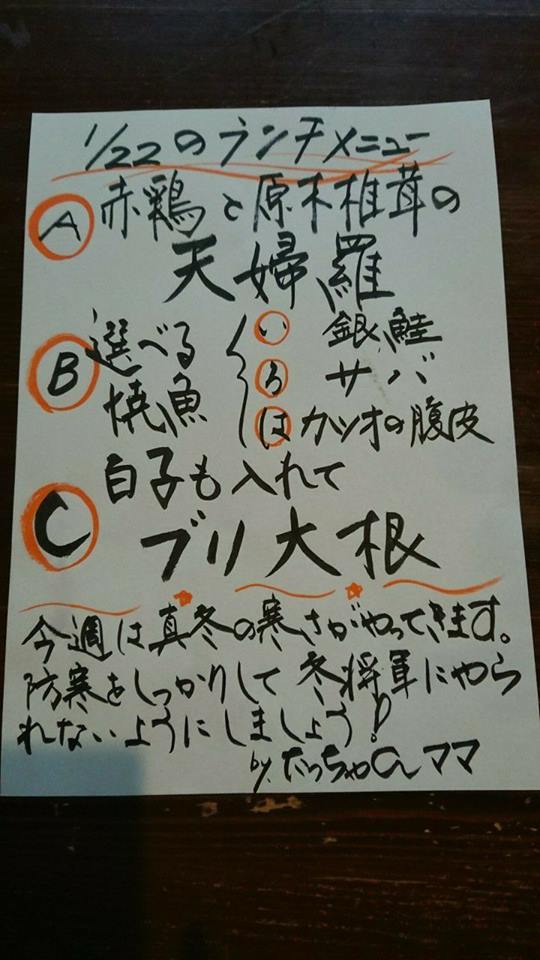 1/22のランチメニュー
A 赤鶏と原木椎茸の
天婦羅
B 選べる焼魚
い 銀鮭
ろ サバ
は カツオの腹皮
C 白子も入れて
ブリ大根
今週は真冬の寒さがやってきます。
防寒をしっかりして冬将軍にやら
れないようにしましょう!
by.たっちゃんママ